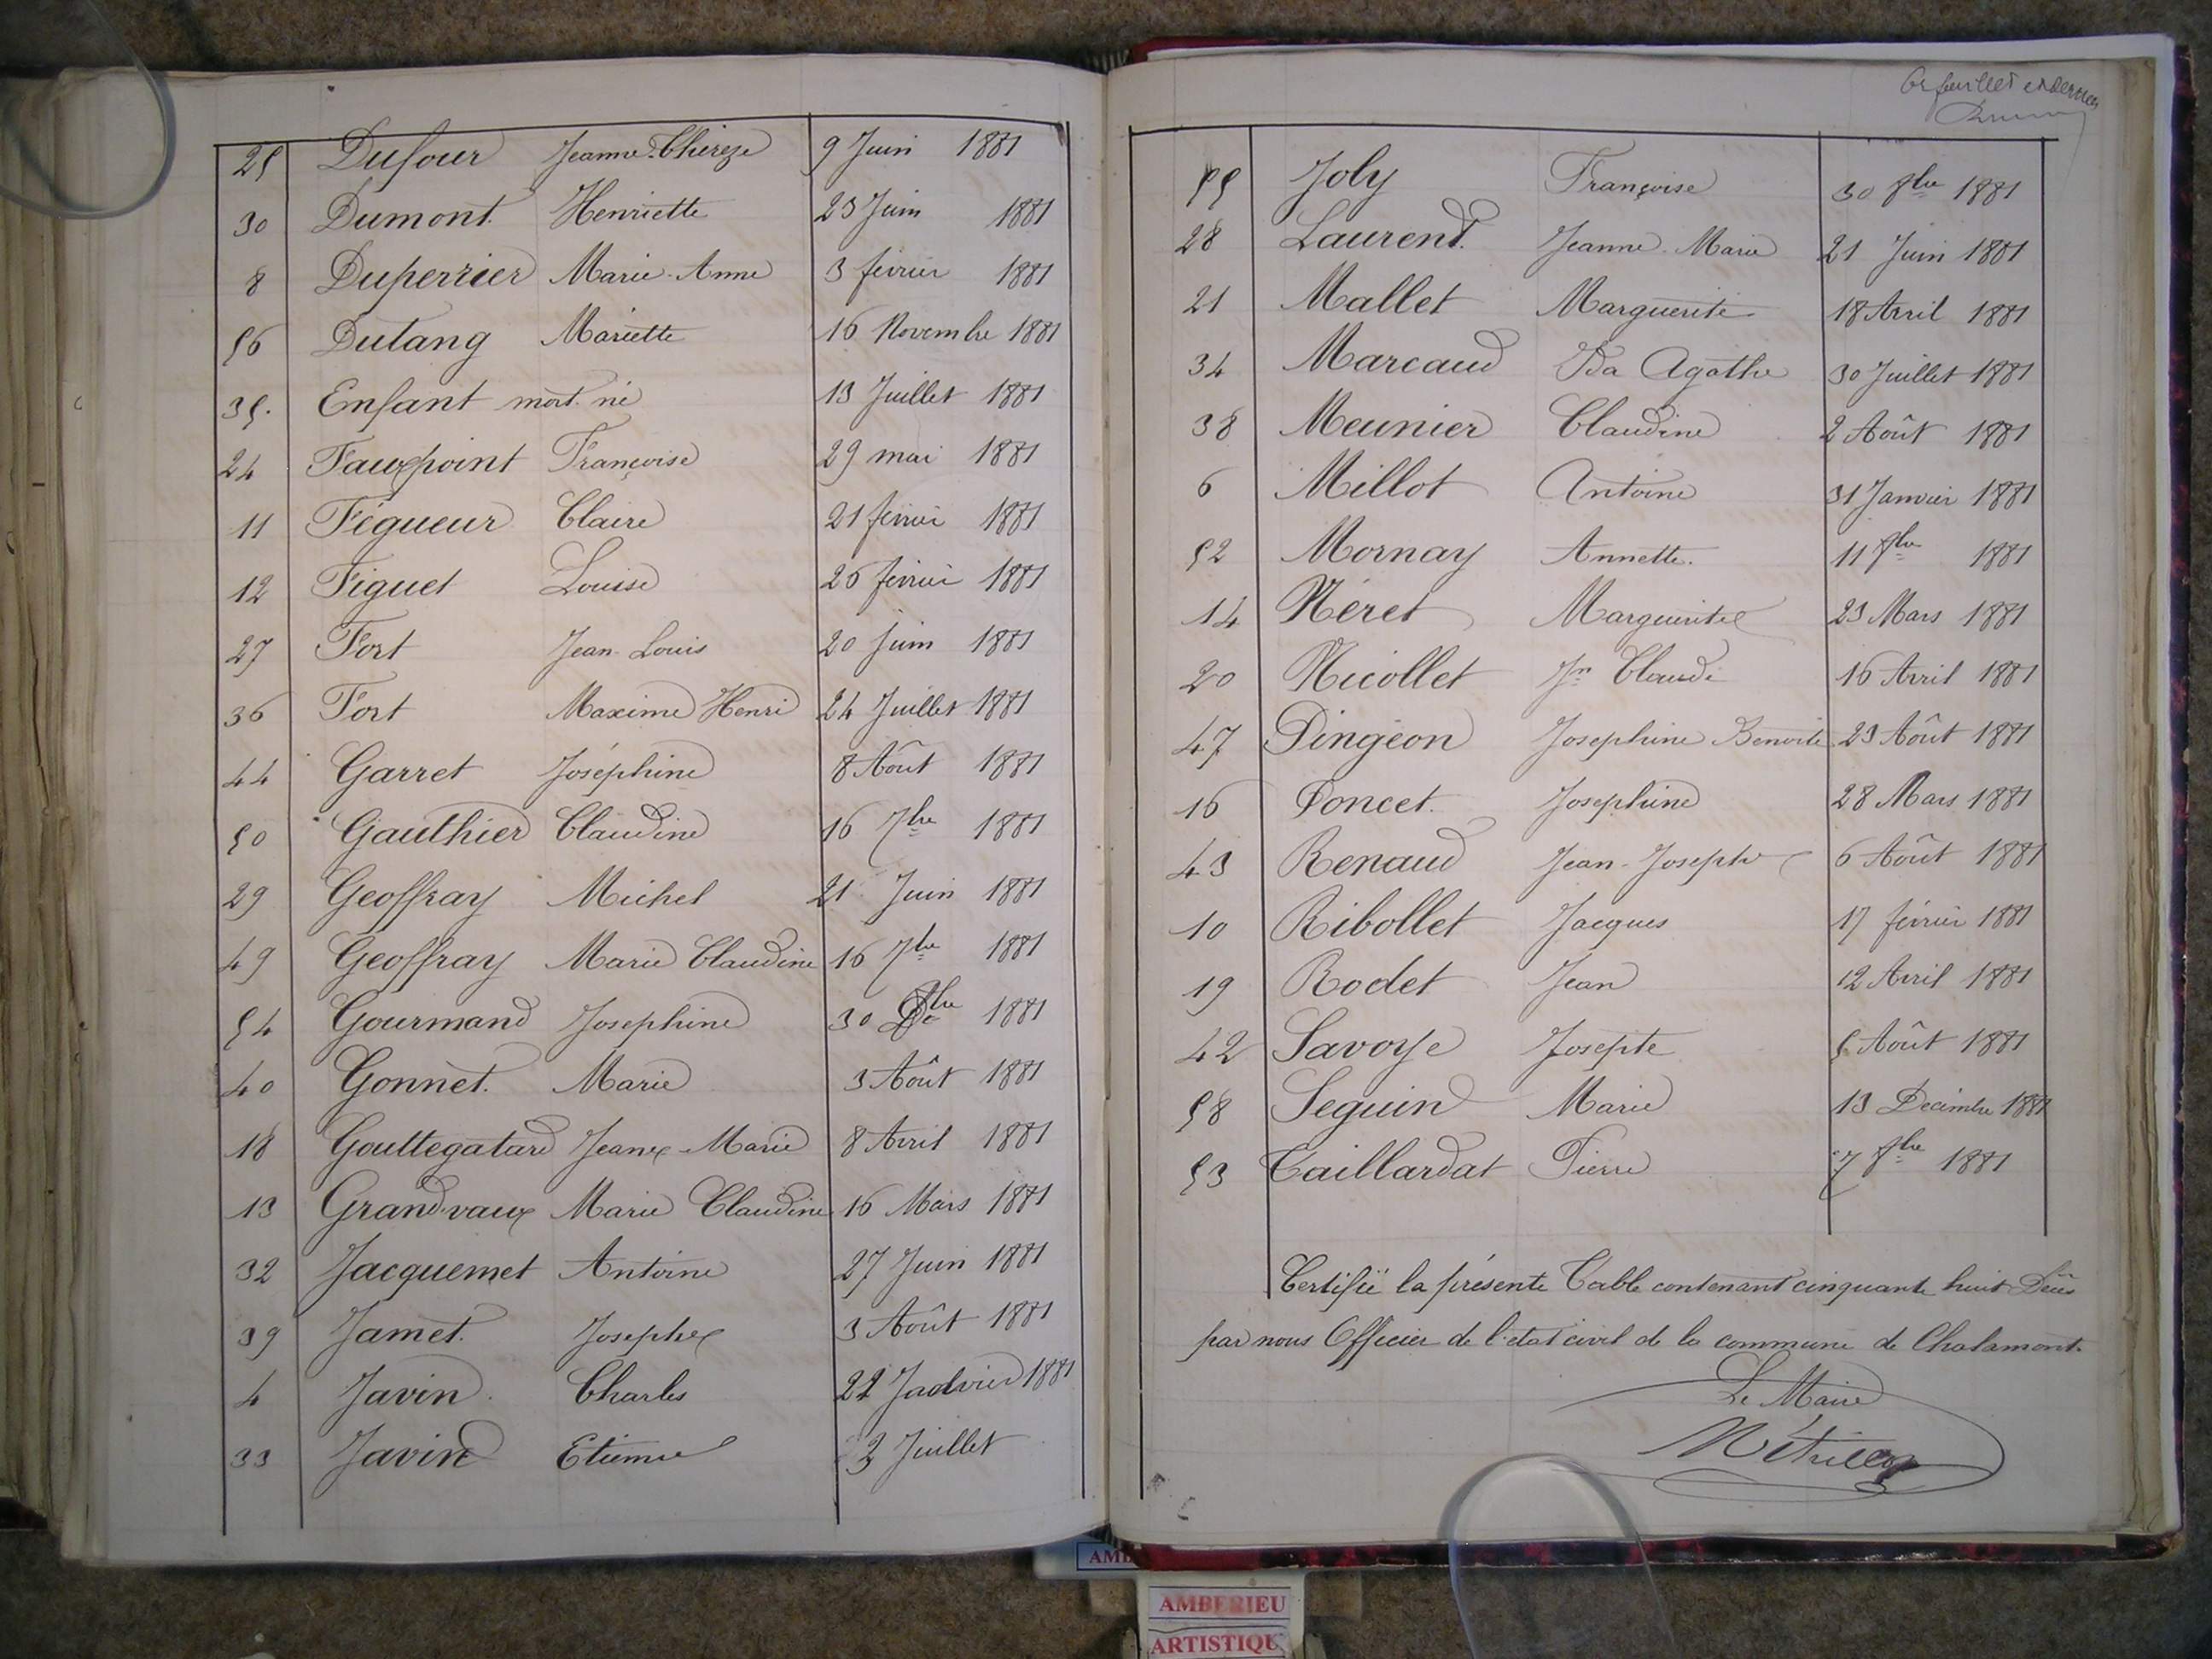 25 Dufour Jeanne-Thérèze 9 Juin 1881
30 Dumont. Henriette 23 Juin 1881
8 Duperrier Marie-Anne 3 février 1881
56 Dutang Mariette 16 Novembre 1881
35. Enfant mort-né 13 Juillet 1881
24 Fauxpoint Françoise 29 mai 1881
11 Figueur Claire 21 février 1881
12 Figuet Louise 26 février 1881
27 Fort Jean-Louis 20 Juin 1881
36 Fort Maxime Henri 24 Juillet 1881
44 Garret Joséphine 8 Août 1881
50 Gauthier Claudine 16 7bre 1881
29 Geoffray Michel 21 Juin 1881
49 Geoffray Marie Claudine 16 7bre 1881
54 Gourmand Josephine 30 8bre 1881
40 Gonnet. Marie 3 Août 1881
18 Gouttegatard Jeane-Marie 8 Avril 1881
13 Grandvaux Marie Claudine 16 Mars 1881
32 Jacquemet Antoine 27 Juin 1881
39 Jamet. Josephe 3 Août 1881
4 Javin. Charles 22 Janvier 1881
33 Javin Etienne 3 Juillet
feuillet et dernier
55 Joly Françoise 30 8bre 1881
28 Laurent. Jeanne-Marie 21 Juin 1881
21 Mallet Marguerite 18 Avril 1881
34 Marcaud Ida Agathe 30 Juillet 1881
38 Meunier Claudine 2 Août 1881
6 Millot Antoine 31 Janvier 1881
52 Mornay Annette. 11 8bre 1881
14 Néret Marguerite 23 Mars 1881
20 Nicollet Jn Claude 16 Avril 1881
47 Pingeon Josephine Benoite 23 Août 1881
16 Poncet. Josephine 28 Mars 1881
43 Renaud Jean-Joseph 6 Août 1881
10 Ribollet Jacques 17 février 1881
19 Rodet Jean 12 Avril 1881
42 Savoye Josepte 5 Août 1881
58 Seguin Marie 13 Decembre 1881
53 Taillardat Pierre 27 8bre 1881
Certifié la présente Table contenant cinquante huit Décès
par nous Officier de l'etat civil de la commune de Chalamont.
Le Maire
AMBERIEU
ARTISTIQU